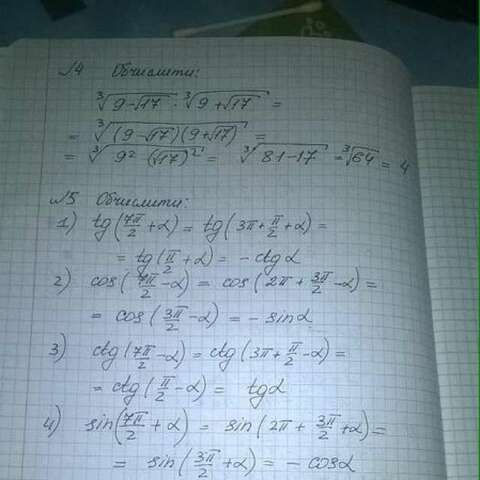 №4 Обчислити:
∛(9-√17) · ∛(9+√17) =
= ∛((9-√17)(9+√17)) =
= ∛(9² - (√17)²) = ∛(81-17) = ∛64 = 4
№5 Обчислити:
1) tg(7π/2 + α) = tg(3π + π/2 + α) =
= tg(π/2 + α) = -ctg α
2) cos(7π/2 - α) = cos(2π + 3π/2 - α) =
= cos(3π/2 - α) = - sin α
3) ctg(7π/2 - α) = ctg(3π + π/2 - α) =
= ctg(π/2 - α) = tg α
4) sin(7π/2 + α) = sin(2π + 3π/2 + α) =
= sin(3π/2 + α) = - cos α